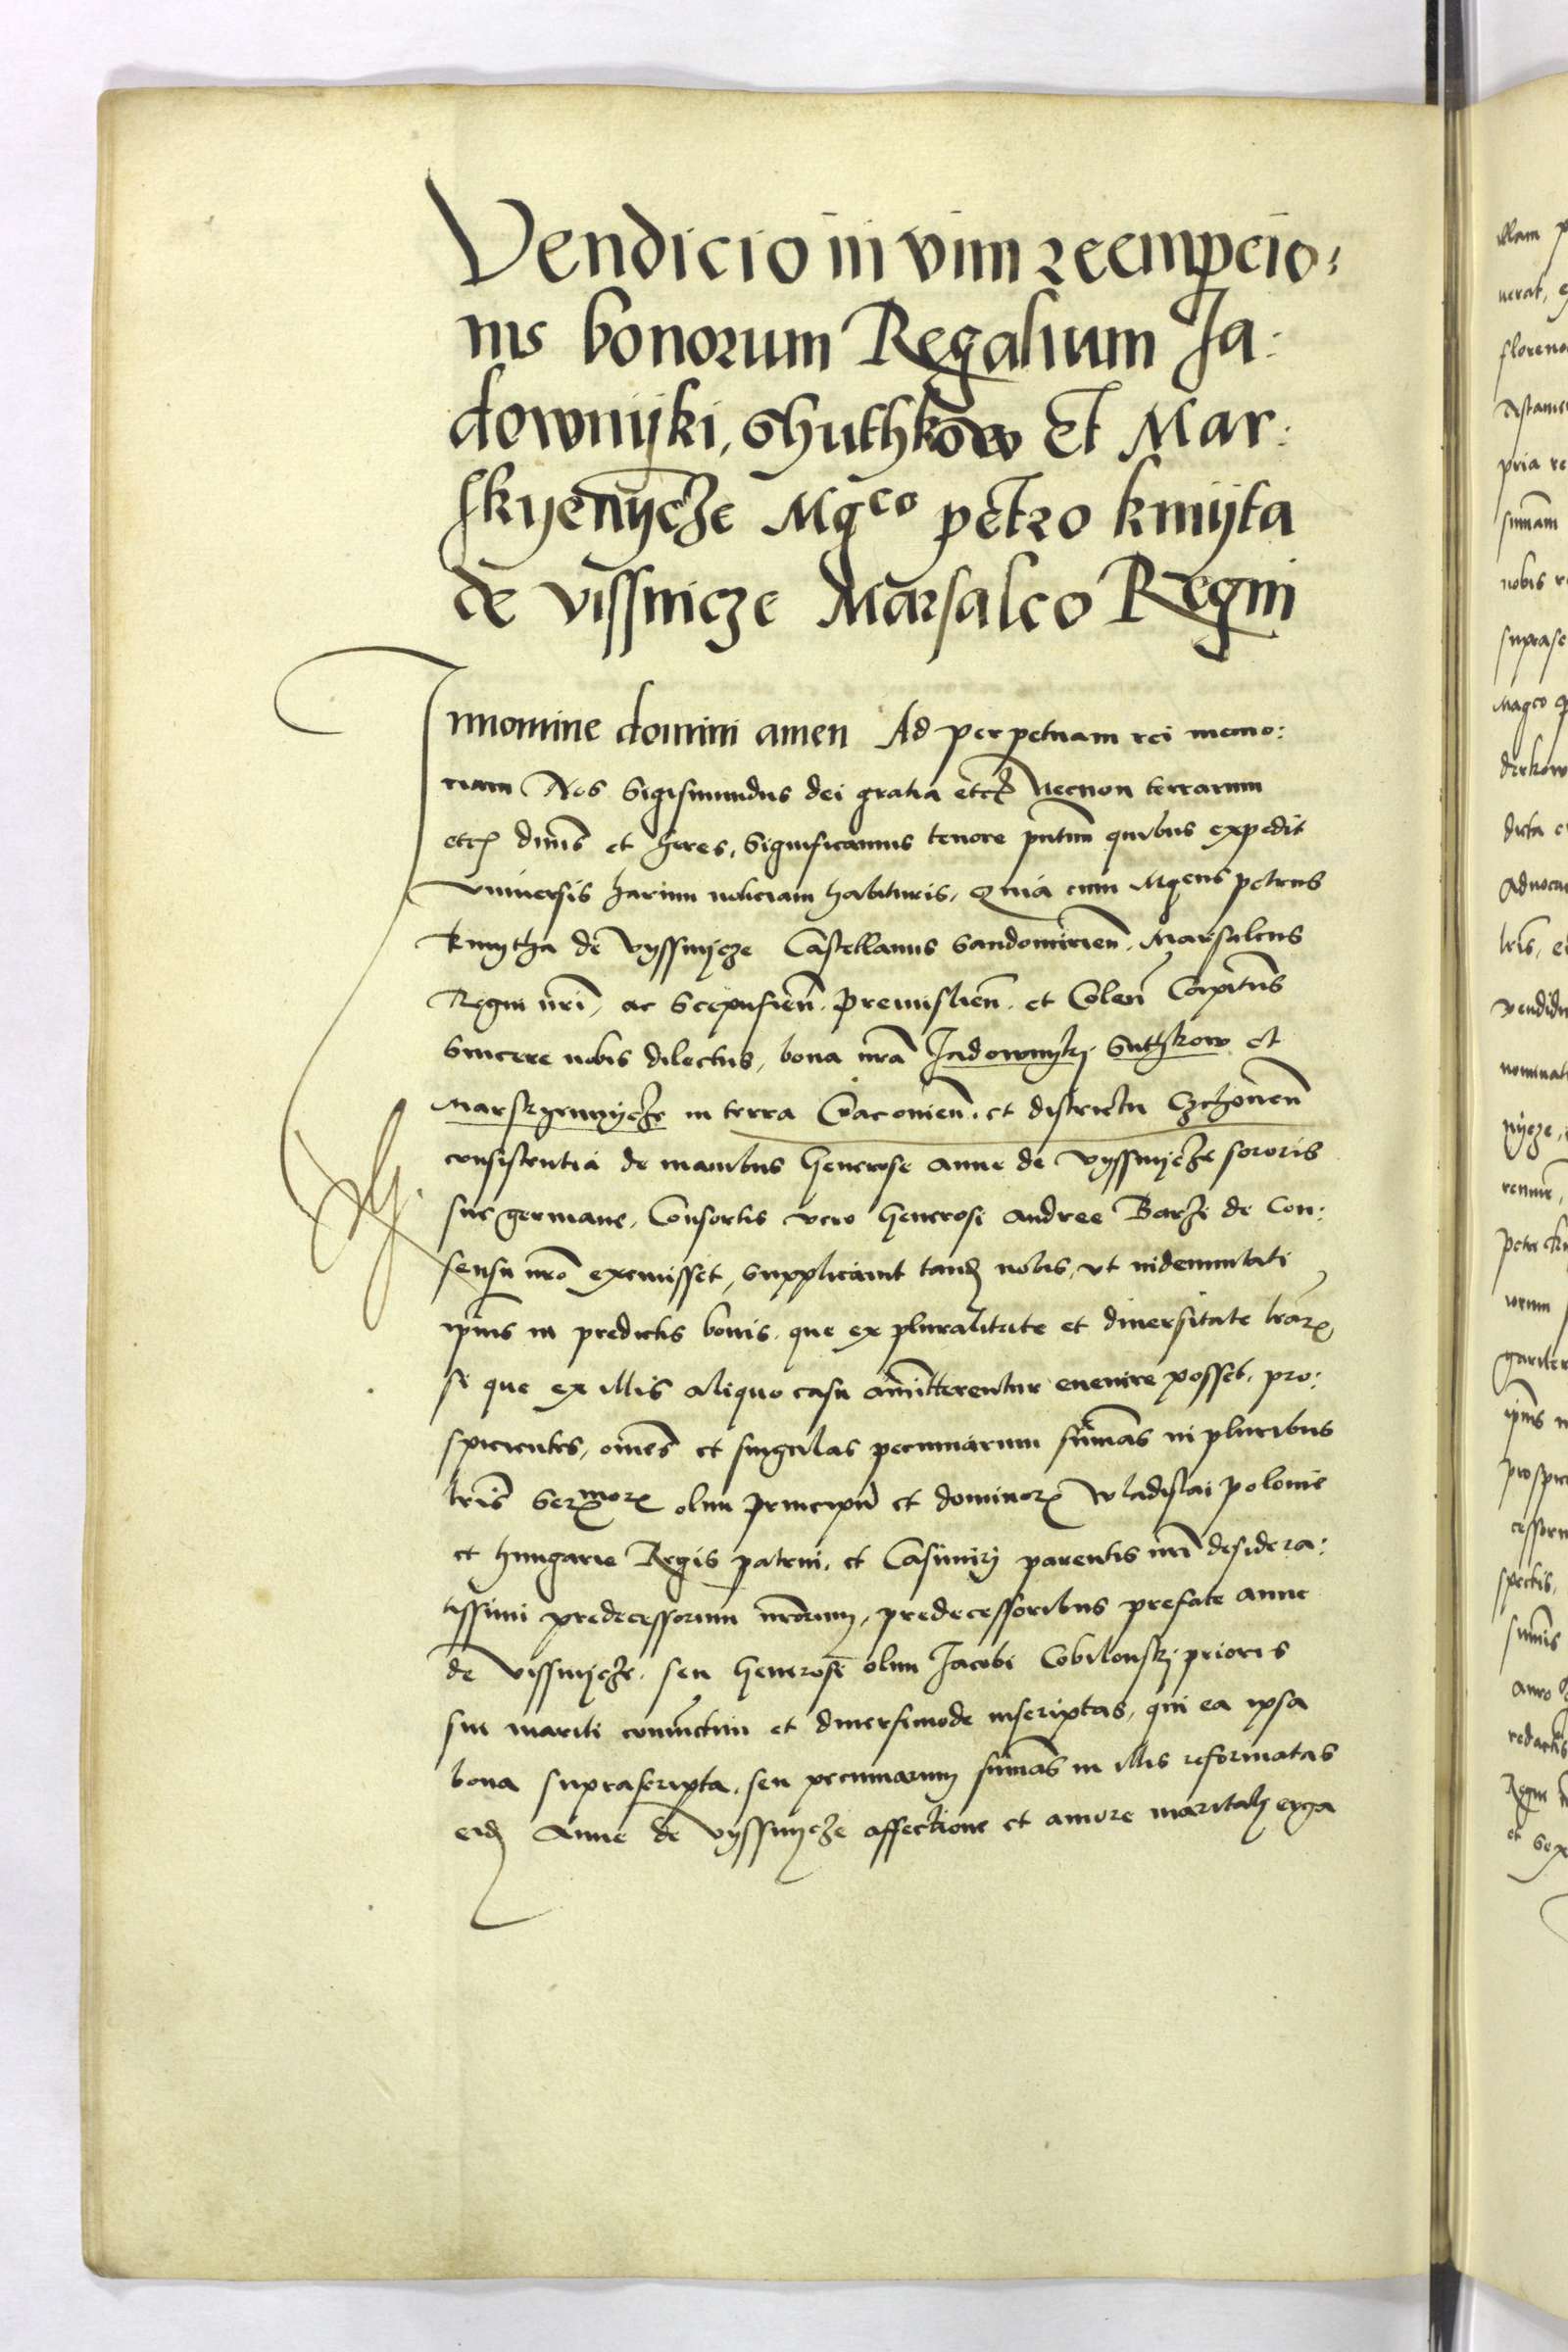 Vendicio in vim reempcio:
nis bonorum Regalium Ja:
downijki, Shuthkow Et Mar:
skyenycze Mgco petro kmijta
de vissnicze Marsalco Regni
Innomine domini amen Ad perpetuam rei memo:
riam Nos Sigismundus dei gratia etc Necnon terrarum
etc dnus et heres, Significamus tenore pntium quibus expedit
vniuersis harum noticiam habituris, Quia cum Mgcus petrus
kmytha de Vyssnycze Castellanus Sandomirien. Marsalcus
Regni nri, ac Scepusien. Premislien. et Colen Capitus
Sincere nobis dilectus, bona nra Jadownykj Suthkow et
Marskyennycze in terra Cracouien. et districtu Czchouien
consistentia de manibus Generose Anne de Vyssnycze sororis
sue germane, Consortis vero Generosi Andree Barzi de Con:
sensu nro exemisset, supplicauit tand nobis, vt indemnitati
ipius in predictis bonis, que ex pluralitate et diuersitate trar
si que ex illis aliquo casu amitterentur euenire posset, pro:
spicientes, omes et singulas pecuniarum sumas in pluribus
tris Sermor olim Principu et dominor Wladislai polonie
et hungarie Regis patrui, et Casimirj parentis nri desidera:
tissimi predecessorum nrorum, predecessoribus prefate Anne
de Vissnycze, seu Generosi olim Jacobi Cobilenskj prioris
sui mariti coniunctim et diuersimode inscriptas, qui ea ipsa
bona suprascripta, seu pecuniarum sumas in illis reformatas
eid Anne de Vyssnycze affectione et amore maritalj erga